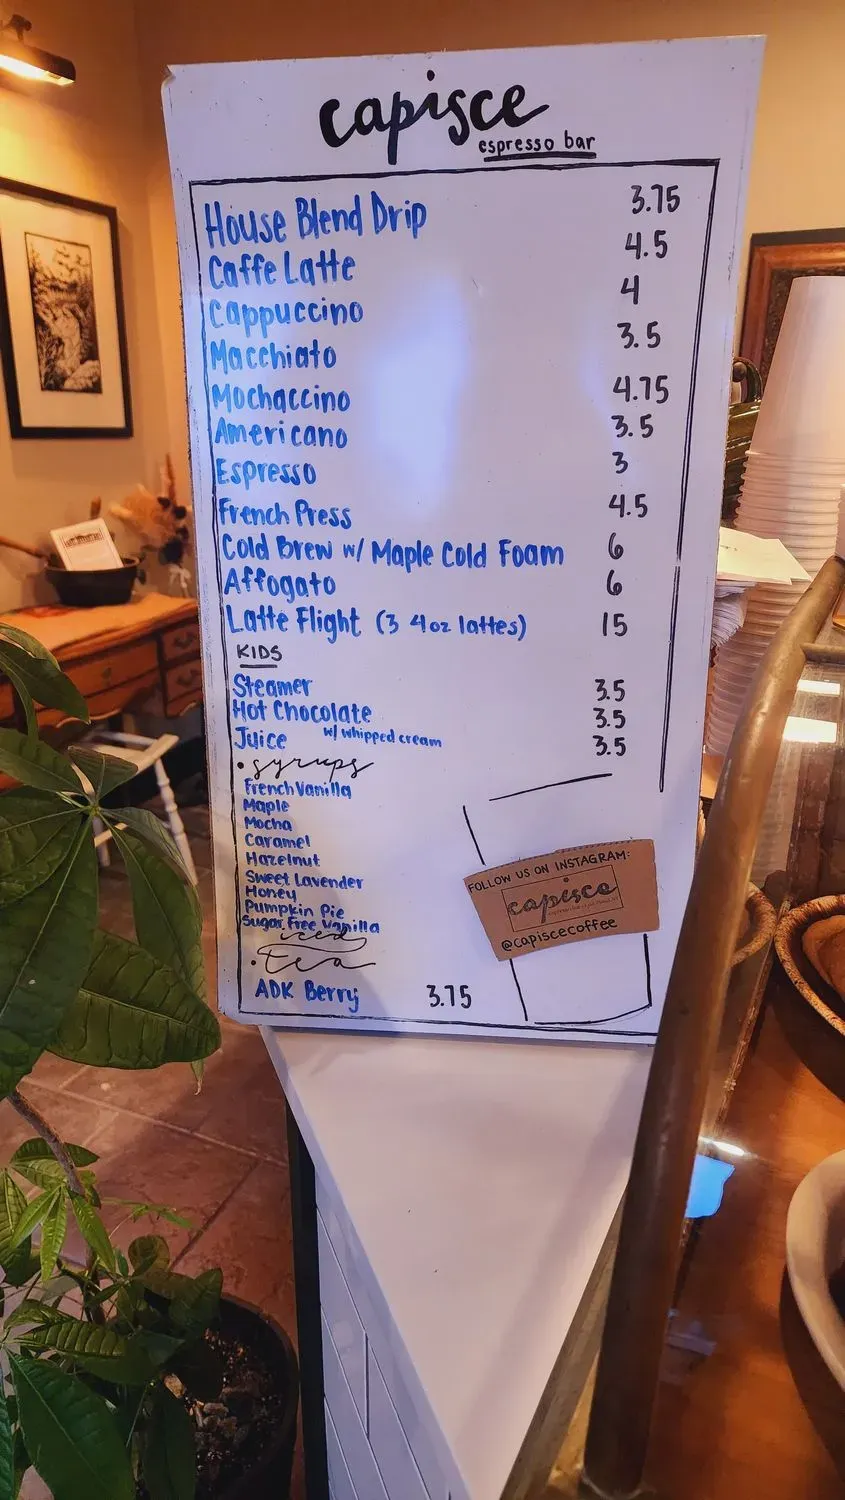 capisce
espresso bar
House Blend Drip 3.75
Caffe Latte 4.5
Cappuccino 4
Macchiato 3.5
Mochaccino 4.75
Americano 3.5
Espresso 3
French Press 4.5
Cold Brew w/ Maple Cold Foam 6
Affogato 6
Latte Flight (3 4oz lattes) 15
KIDS
Steamer 3.5
Hot Chocolate 3.5
w/ whipped cream
Juice 3.5
• syrups
French Vanilla
Maple
Mocha
Caramel
Hazelnut
Sweet Lavender
Honey
Pumpkin Pie
Sugar Free Vanilla
iced
• tea
ADK Berry 3.75
FOLLOW US ON INSTAGRAM:
capisce
@capiscecoffee